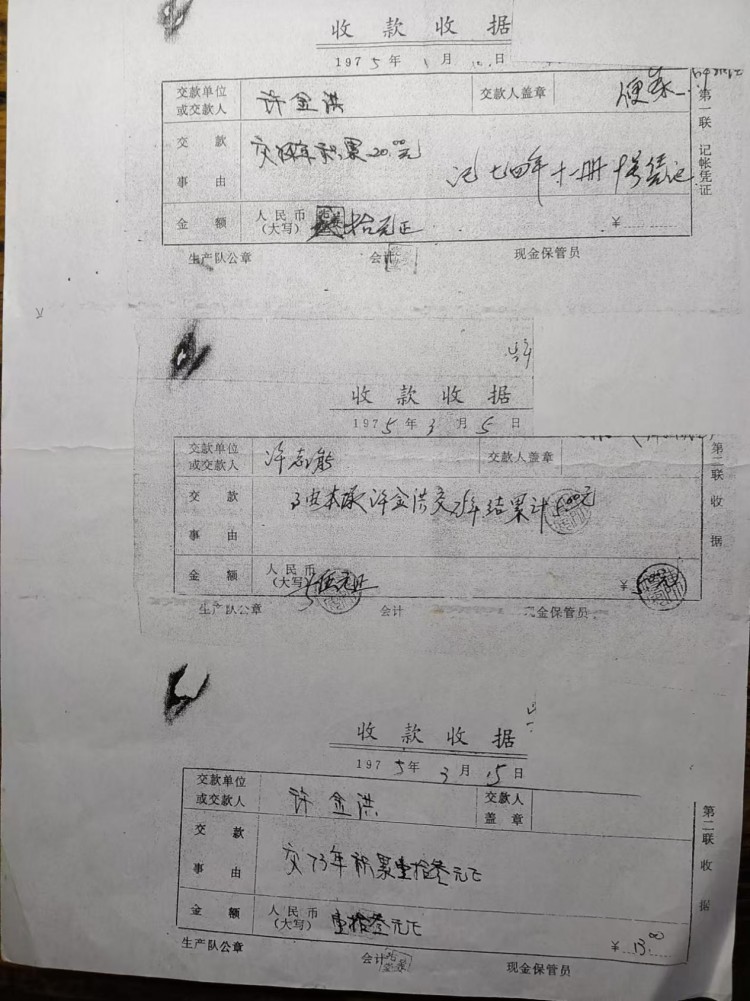 收款收据
1975年1月 日
交款单位或交款人 许金洪 交款人盖章
第一联 记帐凭证
交款事由 交 年积累20.00元
记七四年十一册 号凭记
金额 人民币(大写) 拾元正 ¥
生产队公章 会计 现金保管员
收款收据
1975年3月5日
交款单位或交款人 许志能 交款人盖章
第二联 收据
交款事由 许金洪交 年结累计5.00元
金额 人民币(大写) 伍元正 ¥
生产队公章 会计 现金保管员
收款收据
1975年3月15日
交款单位或交款人 许金洪 交款人盖章
第二联 收据
交款事由 交73年积累壹拾叁元正
金额 人民币(大写) 壹拾叁元正 ¥13.
生产队公章 会计 现金保管员